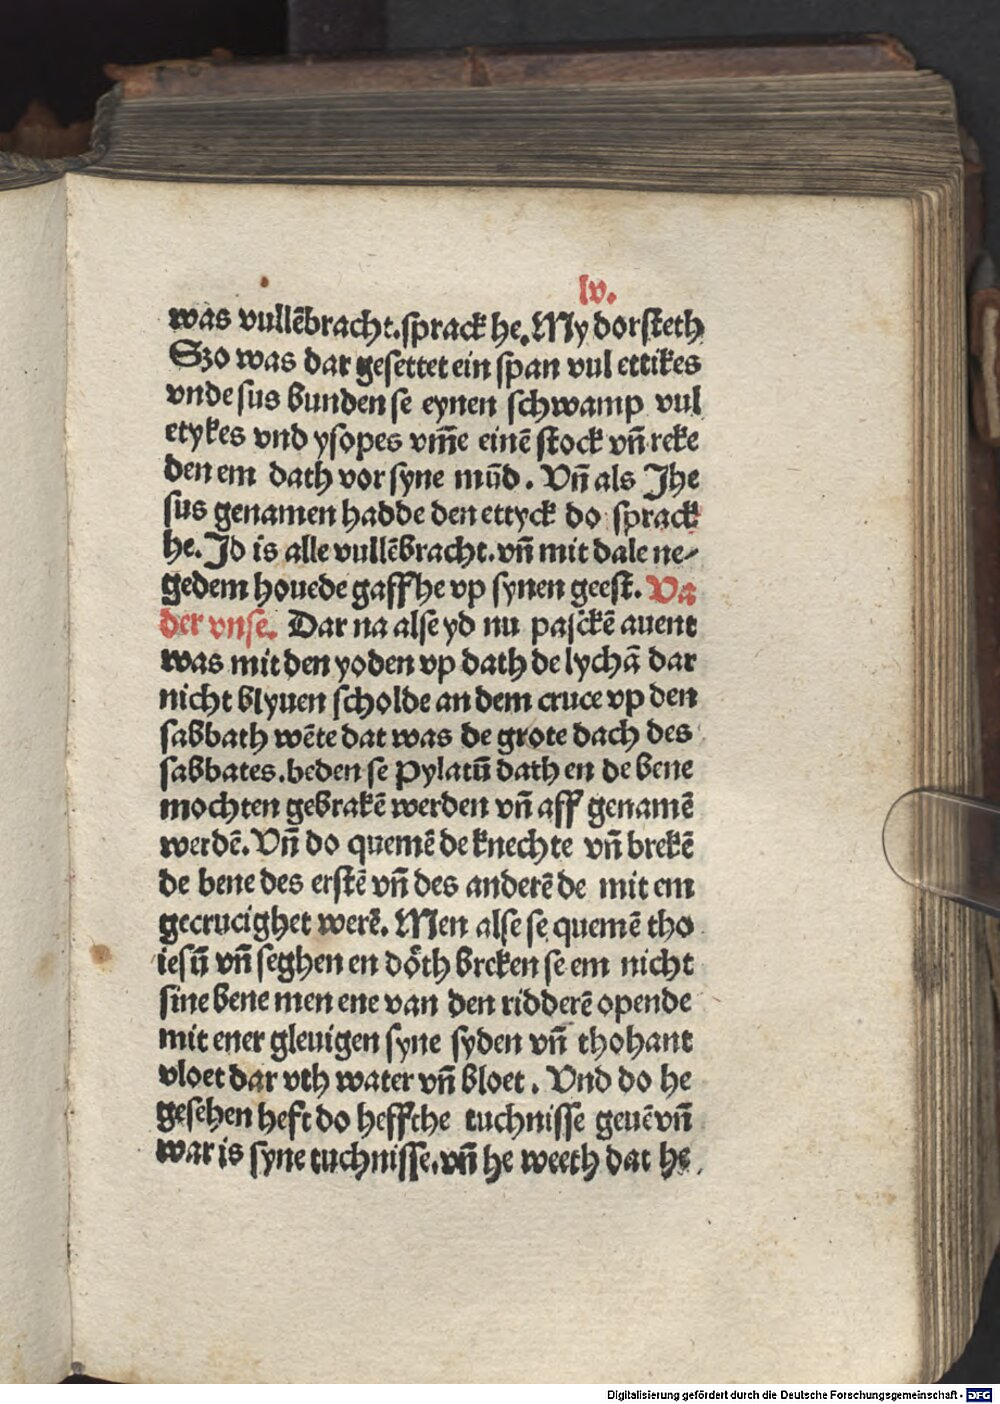 lv.
was vullēbracht.sprack he.My dorsteth
Szo was dar gesettet ein span vul ettikes
vnde sus bunden se eynen schwamp vul
etykes vnd ysopes vm̄e einē stock vn̄ reke
den em dath vor syne mūd. Vn̄ als Jhe
sus genamen hadde den ettyck do sprack
he. Jd is alle vullēbracht.vn̄ mit dale ne-
gedem houede gaff he vp synen geest. Va
der vnse. Dar na alse yd nu paschē auent
was mit den yoden vp dath de lychā dar
nicht blyuen scholde an dem cruce vp den
sabbath wēte dat was de grote dach des
sabbates.beden se Pylatū dath en de bene
mochten gebrakē werden vn̄ aff genamē
werdē. Vn̄ do quemē de knechte vn̄ brekē
de bene des erstē vn̄ des anderē de mit em
gecrucighet werē. Men alse se quemē tho
iesū vn̄ seghen en doͤth breken se em nicht
sine bene men ene van den ridderē opende
mit ener gleuigen syne syden vn̄ thohant
vloet dar vth water vn̄ bloet. Vnd do he
gesehen heft do heffthe tuchnisse geuē vn̄
war is syne tuchnisse.vn̄ he weeth dat he
Digitalisierung gefördert durch die Deutsche Forschungsgemeinschaft - DFG